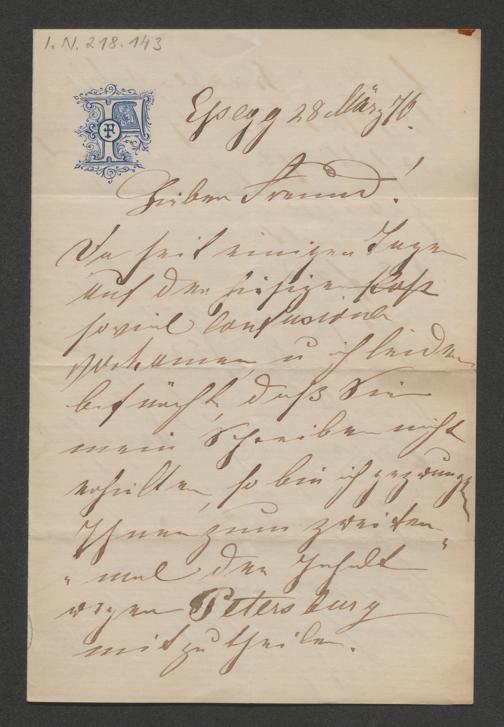 I.N. 218.143
F
Essegg 28 März 76.
Lieber Freund!
Da seit einigen Tagen
auf der hiesigen Post
soviel Confusionen
vorkamen u ich leider
befürcht, daß Sie
mein Schreiben nicht
erhielten, so bin ich gezwungen
Ihnen zum zweiten
mal den Inhalt
wegen Petersburg
mitzutheilen.